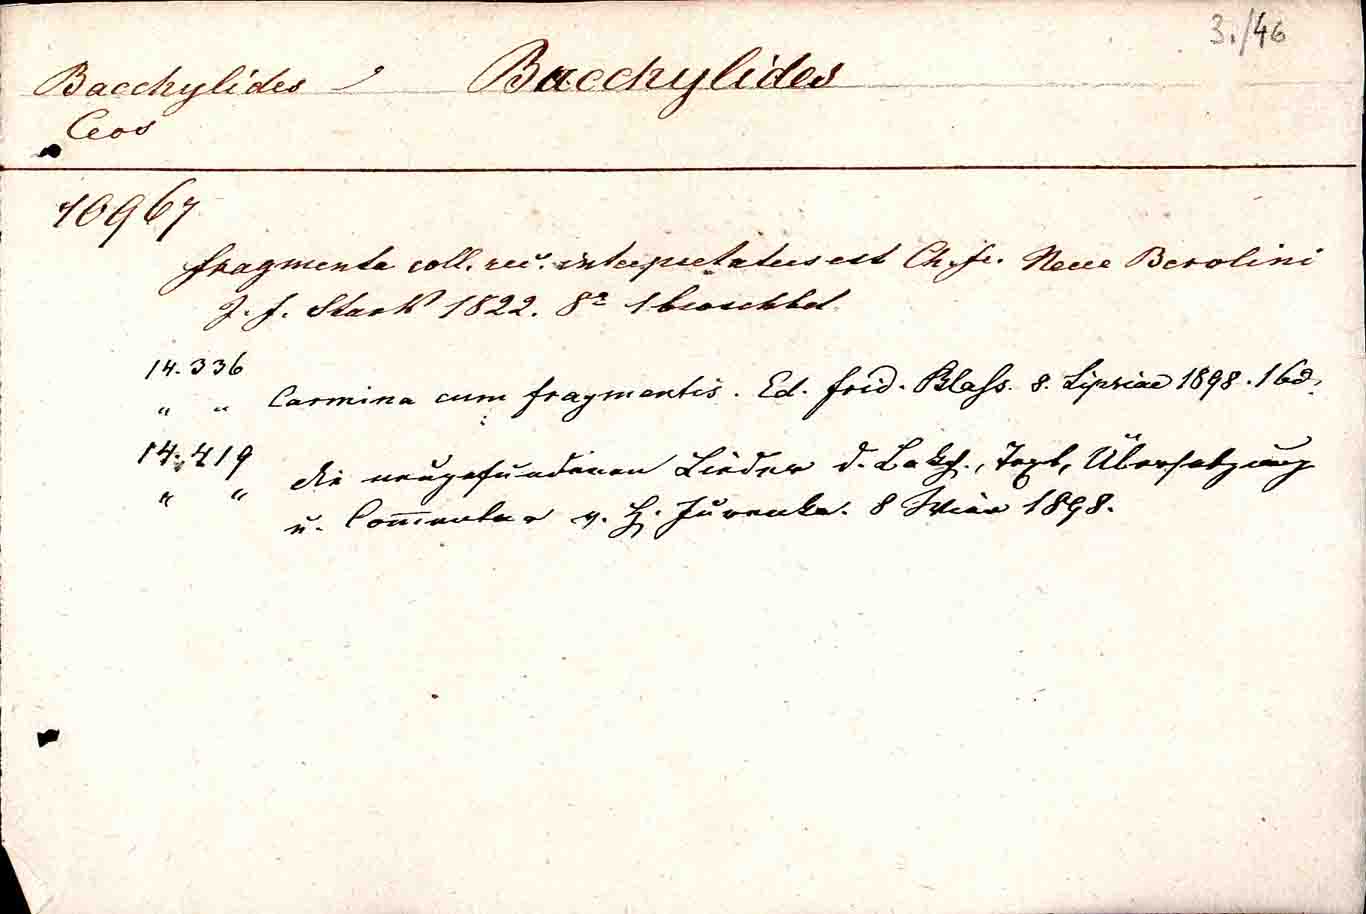 3./46
Bacchylides Bacchylides
Ceos
10967
fragmenta coll. rec. interpretatus est Ch. fr. Neue Berolini
J. f. Stark 1822. 8° 1 broschbd
14.336
" " Carmina cum fragmentis. Ed. frid. Blass. 8. Lipsiae 1898. 1 bd.
14.419
" " die neugefundenen Lieder d. Bakch., Text, Übersetzung
u. Com̅entar v. H. Jurenka. 8 Wien 1898.